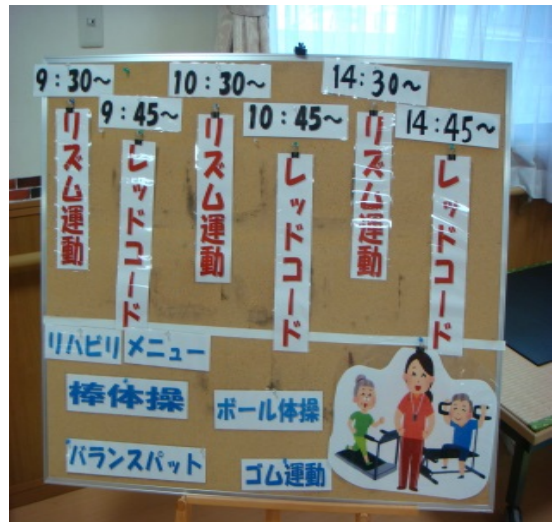 9：30～
10：30～
14：30～
9：45～
10：45～
14：45～
リズム運動
レッドコード
リズム運動
レッドコード
リズム運動
レッドコード
リハビリ メニュー
棒体操
ボール体操
バランスパット
ゴム運動